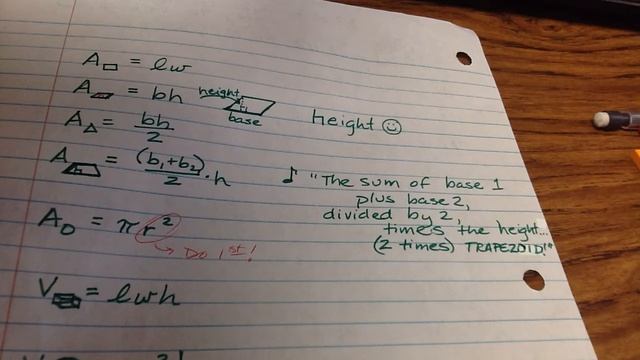 A▭ = lw
A▱ = bh height base Height ☺
A△ = bh/2
A⏢ = (b₁+b₂)/2 · h ♪ "The sum of base 1
plus base 2,
divided by 2,
times the height...
(2 times) TRAPEZOID!"
A○ = πr²
→ Do 1st!
V = lwh